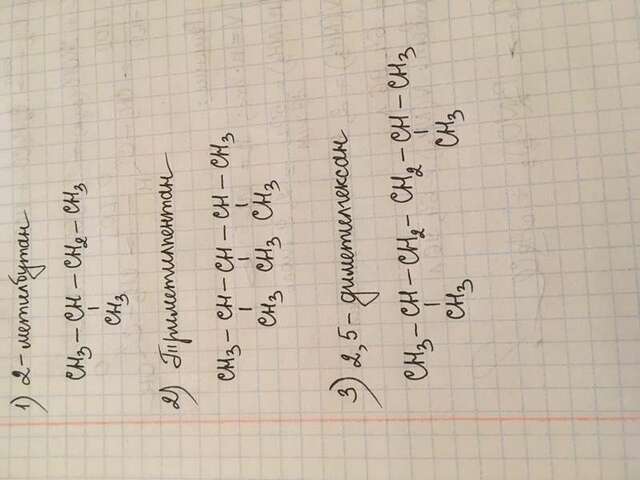 1) 2-метилбутан
CH₃ – CH – CH₂ – CH₃
|
CH₃
2) Триметилпентан
CH₃ – CH – CH – CH – CH₃
| | |
CH₃ CH₃ CH₃
3) 2,5-диметилгексан
CH₃ – CH – CH₂ – CH₂ – CH – CH₃
| |
CH₃ CH₃